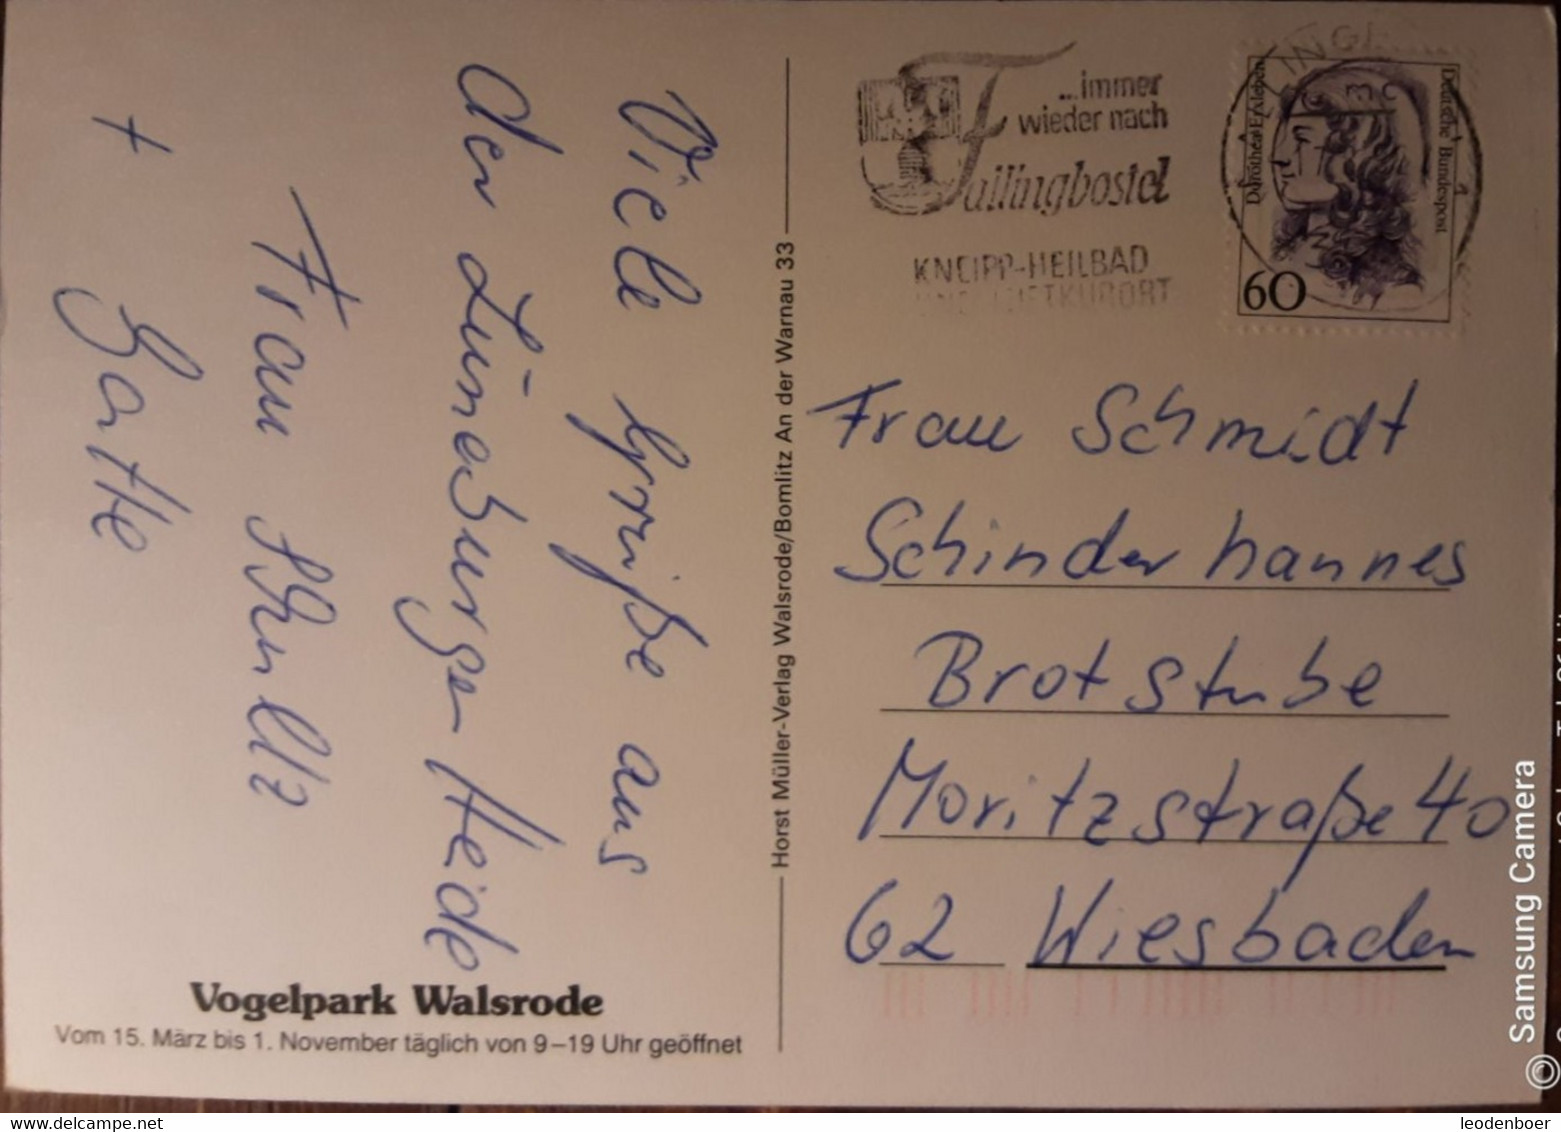 Viele Grüße aus
der Lüneburger Heide
Frau Schullz
+ Gatte
Vogelpark Walsrode
Vom 15. März bis 1. November täglich von 9–19 Uhr geöffnet
Horst Müller-Verlag Walsrode/Bomlitz An der Warnau 33
...immer
wieder nach
Fallingbostel
KNEIPP-HEILBAD
UND LUFTKURORT
Dorothea Erxleben
Deutsche Bundespost
60
Frau Schmidt
Schinderhannes
Brotstube
Moritzstraße 40
62 Wiesbaden
© Samsung Camera
leodenboer